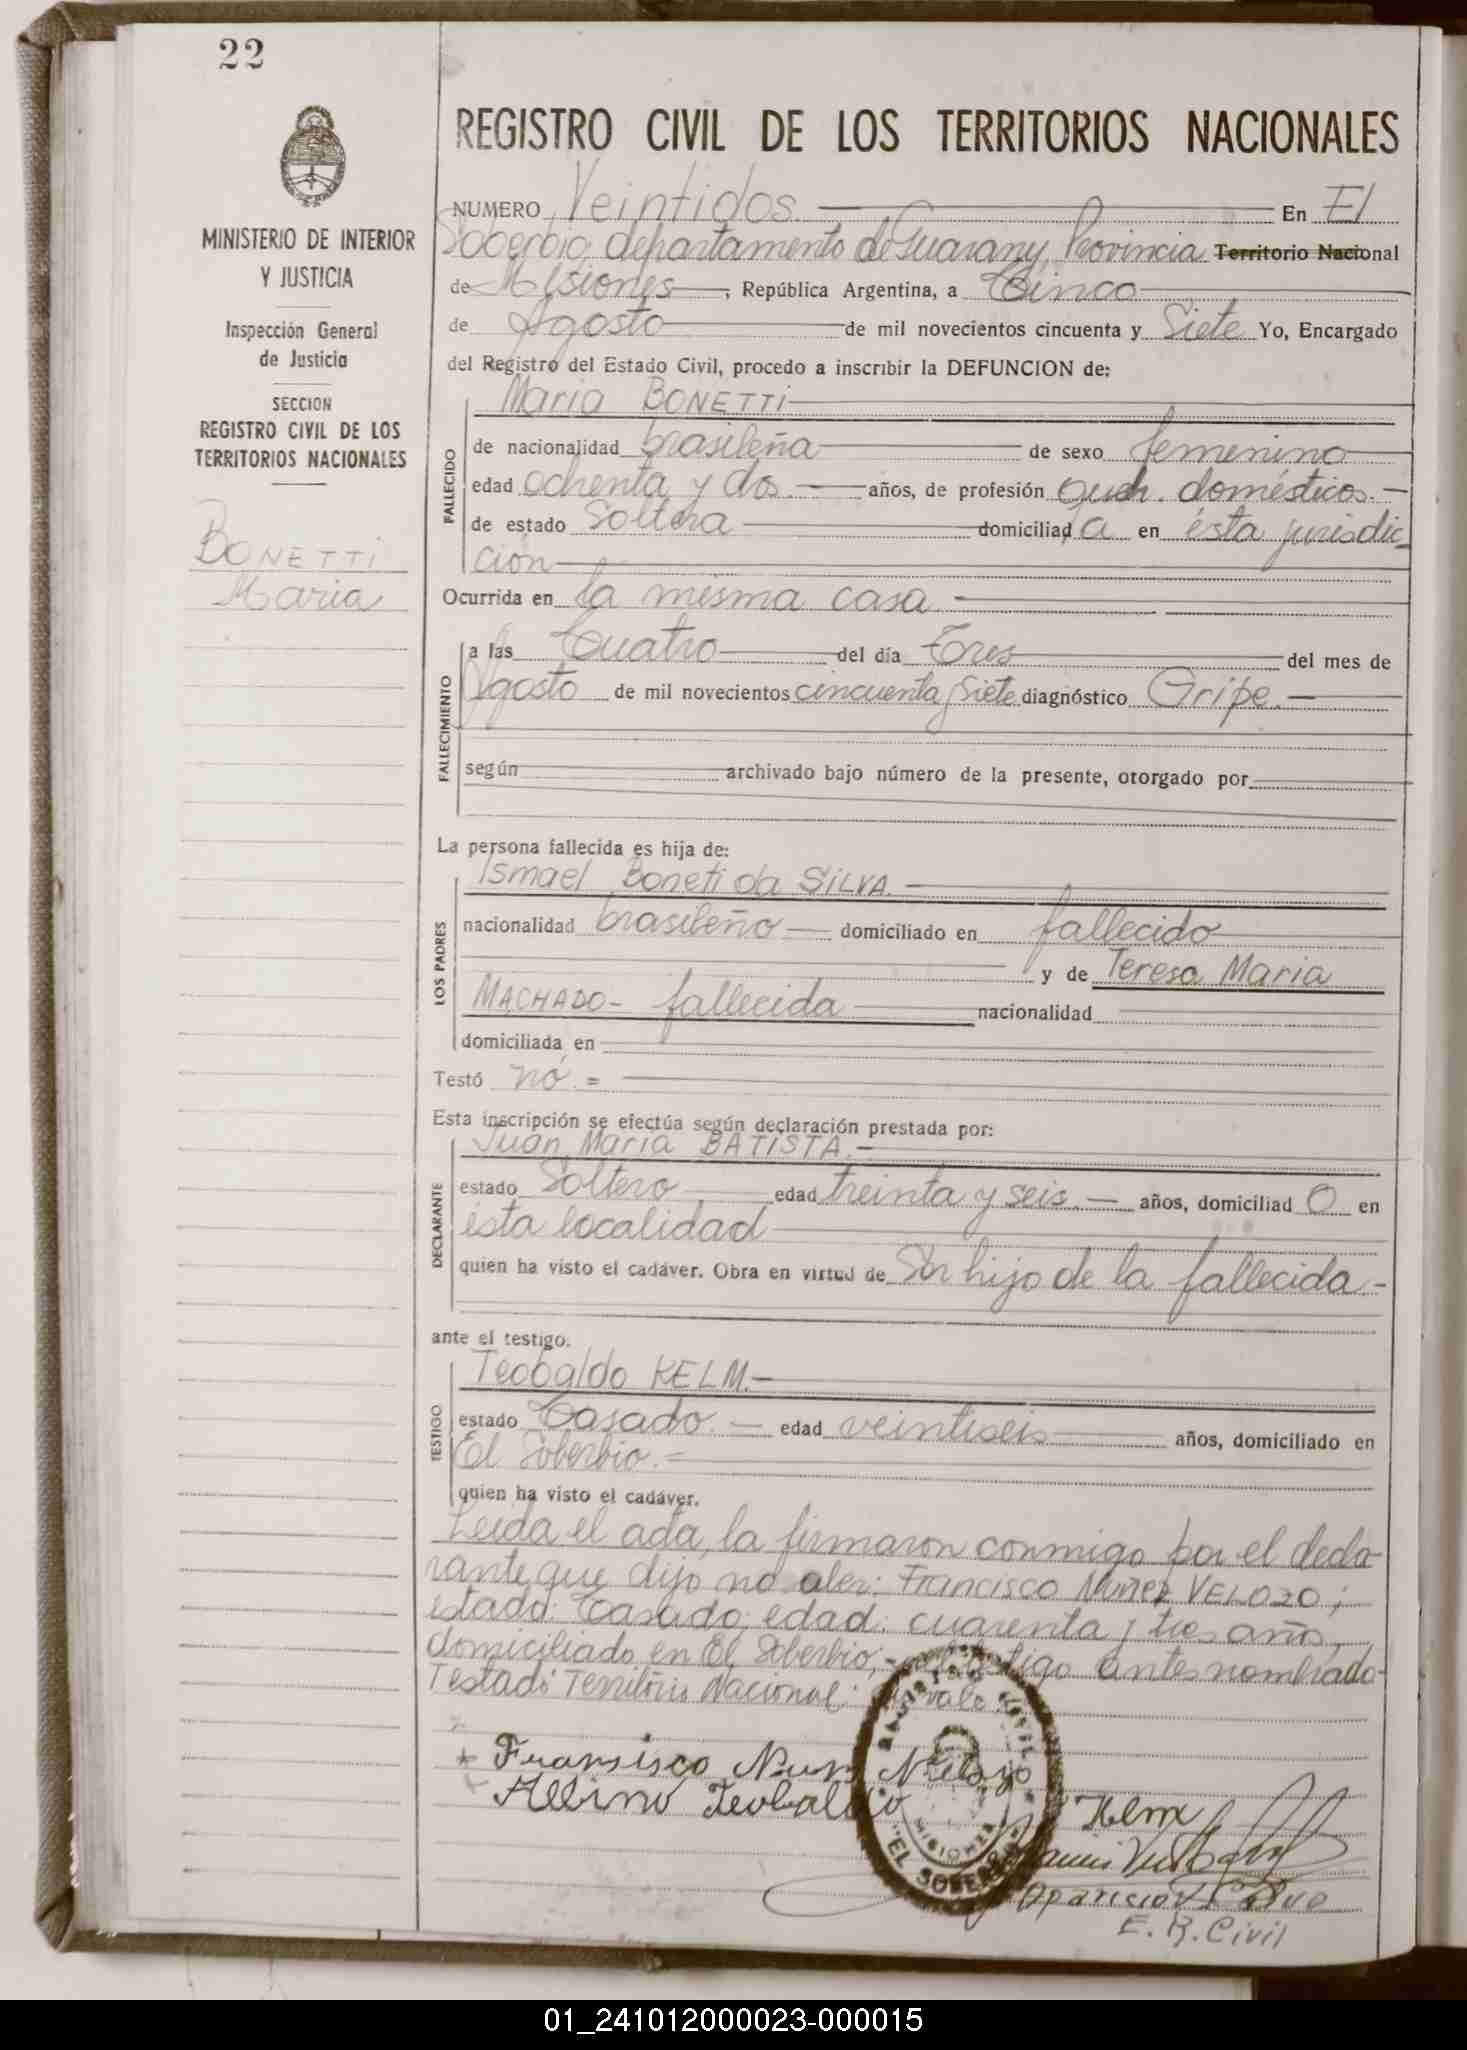 22
MINISTERIO DE INTERIOR
Y JUSTICIA
Inspección General
de Justicia
SECCION
REGISTRO CIVIL DE LOS
TERRITORIOS NACIONALES
BONETTI
Maria
REGISTRO CIVIL DE LOS TERRITORIOS NACIONALES
NUMERO Veintidos. En El
Soberbio, departamento de Guarany, Provincia Territorio Nacional
de Misiones, República Argentina, a Cinco
de Agosto de mil novecientos cincuenta y Siete Yo, Encargado
del Registro del Estado Civil, procedo a inscribir la DEFUNCION de:
Maria BONETTI
FALLECIDO
de nacionalidad brasileña de sexo femenino
edad ochenta y dos. años, de profesión Queh. domésticos.
de estado Soltera domiciliad a en ésta jurisdic-
ción
Ocurrida en la misma casa
FALLECIMIENTO
a las Cuatro del día Tres del mes de
Agosto de mil novecientos cincuenta y siete diagnóstico Gripe.
según archivado bajo número de la presente, otorgado por
La persona fallecida es hija de:
LOS PADRES
Ismael Boneti da SILVA.
nacionalidad brasileño domiciliado en fallecido
y de Teresa Maria
MACHADO- fallecida nacionalidad
domiciliada en
Testó no. =
Esta inscripción se efectúa según declaración prestada por:
DECLARANTE
Juan Maria BATISTA.-
estado Soltero edad treinta y seis. años, domiciliad o en
ésta localidad
quien ha visto el cadáver. Obra en virtud de Ser hijo de la fallecida.-
ante el testigo.
TESTIGO
Teobaldo KELM.-
estado Casado. edad veintiseis años, domiciliado en
El Soberbio.=
quien ha visto el cadáver.
Leida el acta, la firmaron conmigo por el decla-
rante que dijo no saber: Francisco Nuñez VELOZO;
estado: Casado; edad: cuarenta y tres años,
domiciliado en El Soberbio; testigo antes nombrado-
Testado: Territorio Nacional: vale
Fransisco Nuns Velozo
Albino Teobaldo Kelm
REGISTRO CIVIL
MISIONES
"EL SOBERBIO"
Aparicio
E. R. Civil
01_241012000023-000015